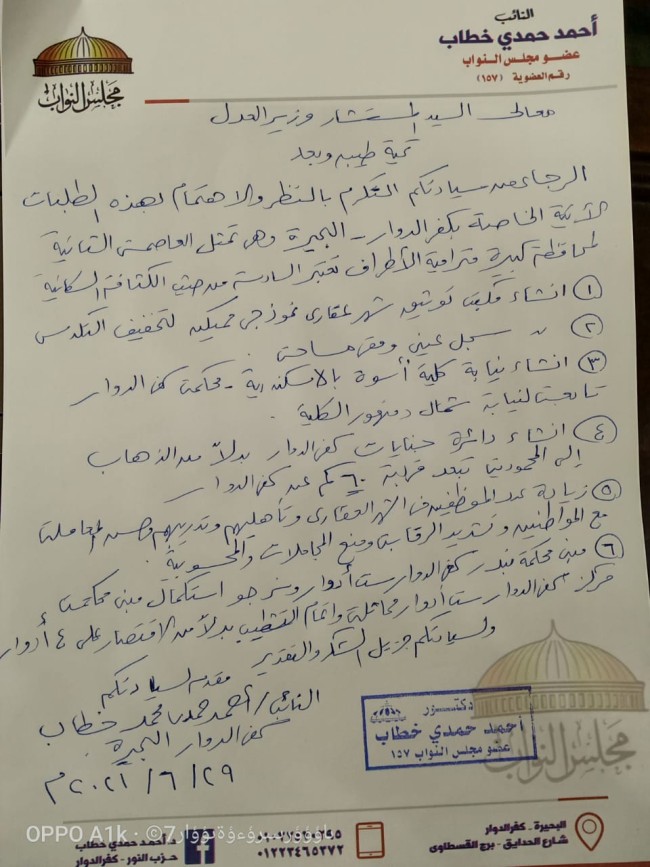 النائب
أحمد حمدي خطاب
عضو مجلس النواب
رقم العضوية (١٥٧)
مجلس النواب
معالى السيد المستشار وزير العدل
تحية طيبه وبعد
الرجاء من سيادتكم التكرم بالنظر والاهتمام لهذه الطلبات
الآتية الخاصة بكفر الدوار - البحيرة وهى تمثل العاصمة الثانية
لمحافظة كبيرة مترامية الأطراف تعتبر السادسة من حيث الكثافة السكانية
١ انشاء مكتب توثيق شهر عقارى نموذجى مميكن لتخفيف التكدس
٢ " سجل عينى ومقر مساحة .
٣ انشاء نيابة كلية أسوة بالاسكندرية - محكمة كفر الدوار
تابعة لنيابة شمال دمنهور الكلية .
٤ انشاء دائرة جنايات كفر الدوار بدلاً من الذهاب
إلى المحمودية تبعد قرابة ٦٠ كم عن كفر الدوار
٥ زيادة عدد الموظفين فى الشهر العقارى وتأهليهم وتدريبهم وحسن المعاملة
مع المواطنين وتشديد الرقابة ومنع المجاملات والمحسوبية .
٦ مبنى محكمة بندر كفر الدوار ستة أدوار ونرجو استكمال مبنى محكمة
مركز كفر الدوار ستة أدوار مماثلة واتمام التشطيب بدلاً من الاقتصار على ٤ أدوار
ولسيادتكم جزيل الشكر والتقدير
مقدمه لسيادتكم
النائب / أحمد حمدى محمد خطاب
كفر الدوار البحيرة
٢٠٢١/٦/٢٩ م
دكتور
أحمد حمدي خطاب
عضو مجلس النواب ١٥٧
مجلس النواب
البحيرة - كفر الدوار
شارع الحدايق - برج القسطاوى
٠١٢٢٣٤٦٥٢٧٢
د. أحمد حمدي خطاب
حزب النور - كفر الدوار
OPPO A1k